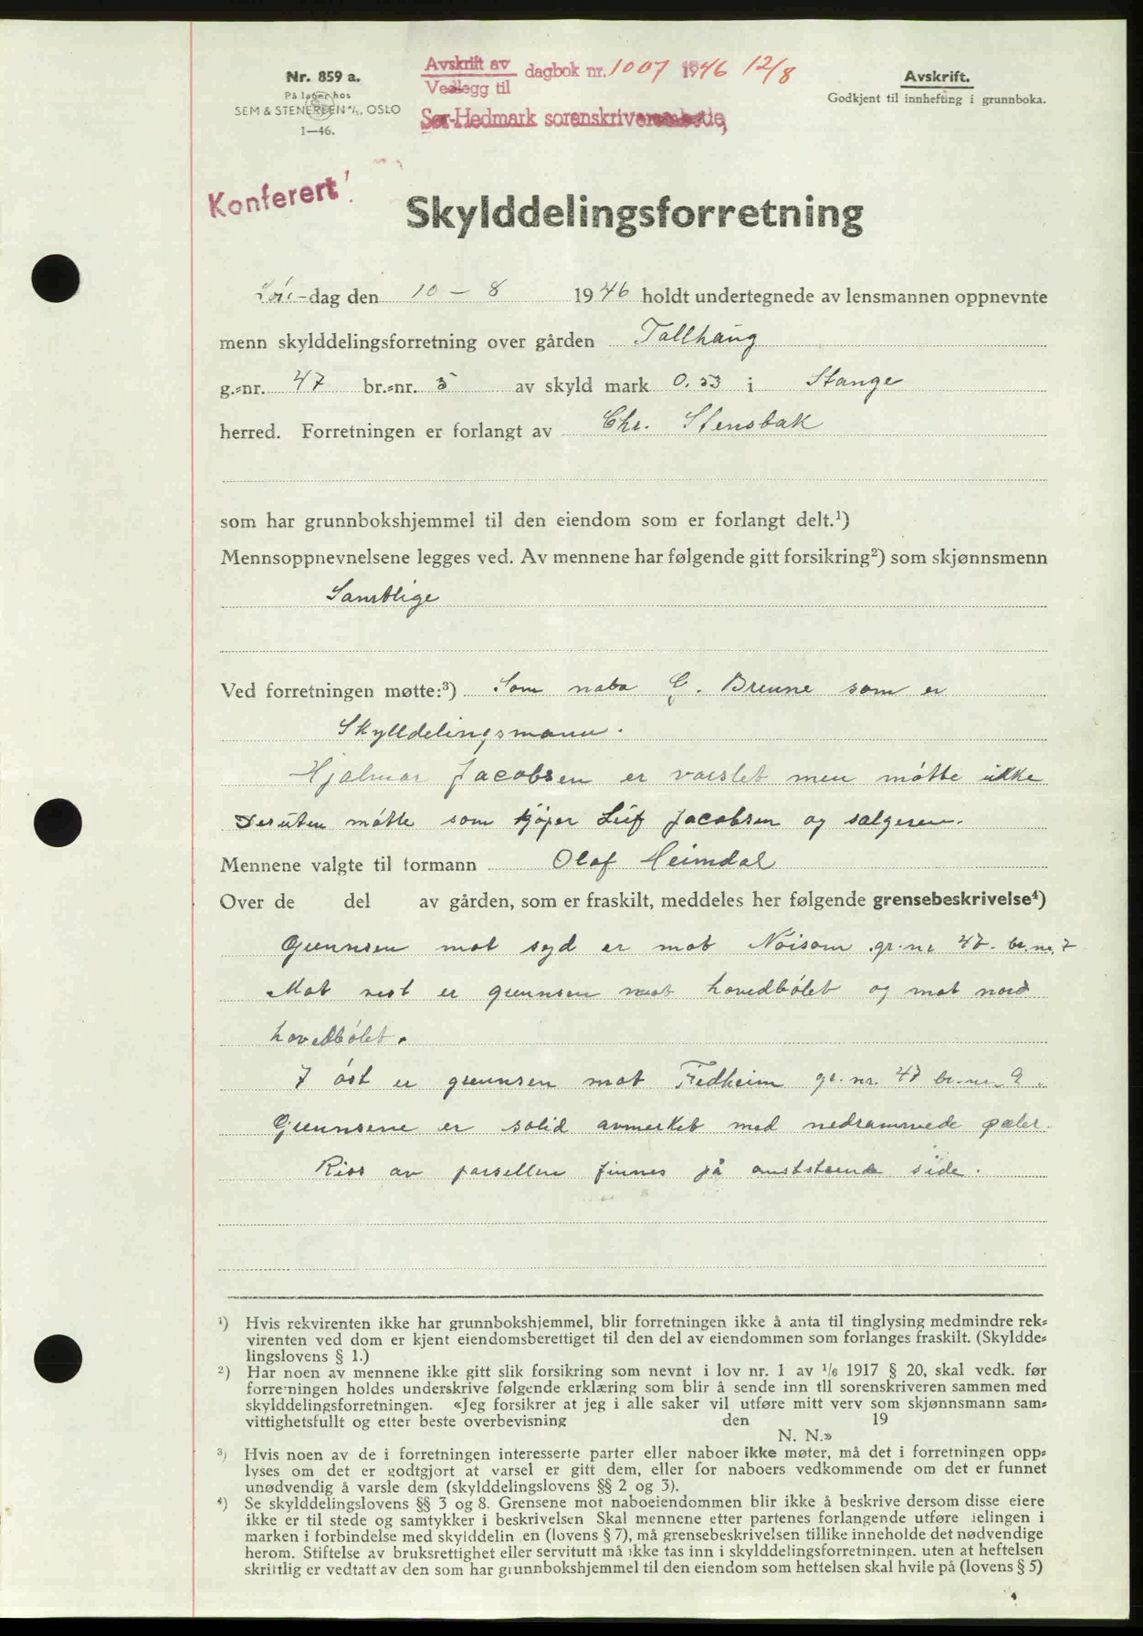 Nr. 859 a.
På lager hos
SEM & STENERSEN A/S, OSLO
1—46.
Avskrift av
Vedlegg til
dagbok nr. 1007 1946 12/8
Sør-Hedmark sorenskriverembede,
Avskrift.
Godkjent til innhefting i grunnboka.
Konferert!
Skylddelingsforretning
Lør-dag den 10 – 8 1946 holdt undertegnede av lensmannen oppnevnte
menn skylddelingsforretning over gården Tallhaug
g.-nr. 47 br.-nr. 5 av skyld mark 0.53 i Stange
herred. Forretningen er forlangt av Chr. Stensbak
som har grunnbokshjemmel til den eiendom som er forlangt delt.¹)
Mennsoppnevnelsene legges ved. Av mennene har følgende gitt forsikring²) som skjønnsmenn
Samtlige
Ved forretningen møtte:³) Som nabo G. Brenne som er
Skylldelingsmann.
Hjalmar Jacobsen er varslet men møtte ikke
Desuten møtte som kjøper Leif Jacobsen og selgeren.
Mennene valgte til formann Olaf Heimdal
Over de del av gården, som er fraskilt, meddeles her følgende grensebeskrivelse⁴)
Grennsen mot syd er mot Nøisom gr.nr 47. br.nr. 7
Mot vest er grennsen mot hovedbølet og mot nord
hovedbølet.
I øst er grennsen mot Fredheim gr.nr. 47 br.nr. 9.
Grennsene er solid avmerket med nedrammede pæler.
Riss av parsellen finnes på omststående side.
¹) Hvis rekvirenten ikke har grunnbokshjemmel, blir forretningen ikke å anta til tinglysing medmindre rek-
virenten ved dom er kjent eiendomsberettiget til den del av eiendommen som forlanges fraskilt. (Skyldde-
lingslovens § 1.)
²) Har noen av mennene ikke gitt slik forsikring som nevnt i lov nr. 1 av 1/6 1917 § 20, skal vedk. før
forretningen holdes underskrive følgende erklæring som blir å sende inn til sorenskriveren sammen med
skylddelingsforretningen. «Jeg forsikrer at jeg i alle saker vil utføre mitt verv som skjønnsmann sam-
vittighetsfullt og etter beste overbevisning den 19
N. N.»
³) Hvis noen av de i forretningen interesserte parter eller naboer ikke møter, må det i forretningen opp-
lyses om det er godtgjort at varsel er gitt dem, eller for naboers vedkommende om det er funnet
unødvendig å varsle dem (skylddelingslovens §§ 2 og 3).
⁴) Se skylddelingslovens §§ 3 og 8. Grensene mot naboeiendommen blir ikke å beskrive dersom disse eiere
ikke er til stede og samtykker i beskrivelsen Skal mennene etter partenes forlangende utføre delingen i
marken i forbindelse med skylddelingen (lovens § 7), må grensebeskrivelsen tillike inneholde det nødvendige
herom. Stiftelse av bruksrettighet eller servitutt må ikke tas inn i skylddelingsforretningen, uten at heftelsen
skriftlig er vedtatt av den som har grunnbokshjemmel til den eiendom som heftelsen skal hvile på (lovens § 5)